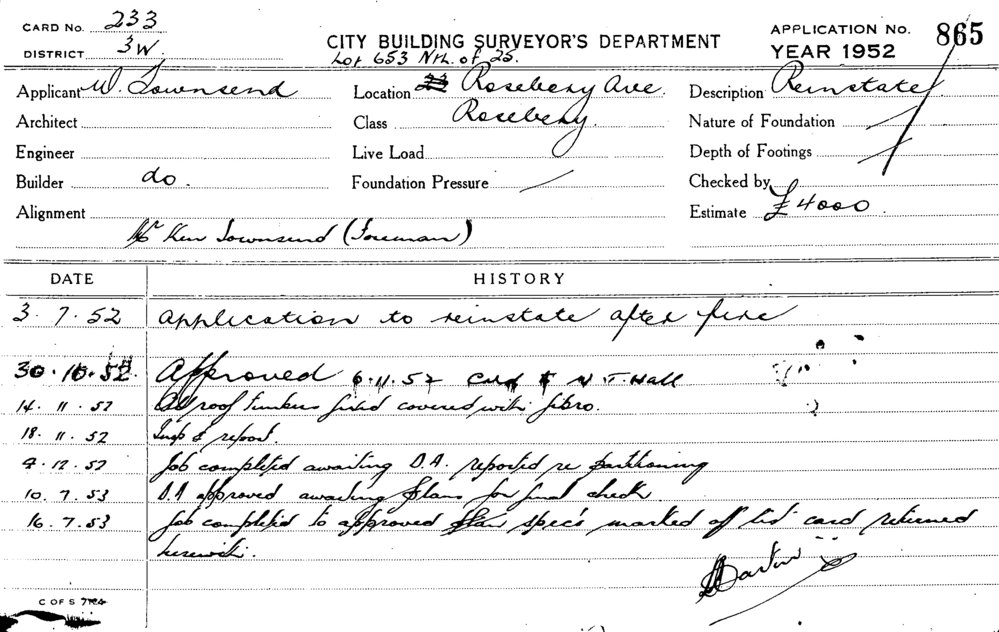 CARD No. 233
DISTRICT 3W.
CITY BUILDING SURVEYOR'S DEPARTMENT
Lot 653 Nth. of 25.
APPLICATION No. 865
YEAR 1952
Applicant W. Townsend
Location 23 Rosebery Ave.
Description Reinstate
Architect
Class Rosebery.
Nature of Foundation
Engineer
Live Load
Depth of Footings
Builder do.
Foundation Pressure
Checked by
Alignment
Estimate £4000
Mr Ken Townsend (Foreman)
DATE HISTORY
3.7.52 Application to reinstate after fire
30.10.52. Approved 6.11.52 Card N.T. Hall
14.11.52 roof timbers fixed covered with fibro.
18.11.52 Insp & report.
9.12.52 Job completed awaiting D.A. reported re partitioning
10.7.53 D.A approved awaiting plans for final check.
16.7.53 Job completed to approved plan spec's marked of list card returned
herewith.
C OF S 7124